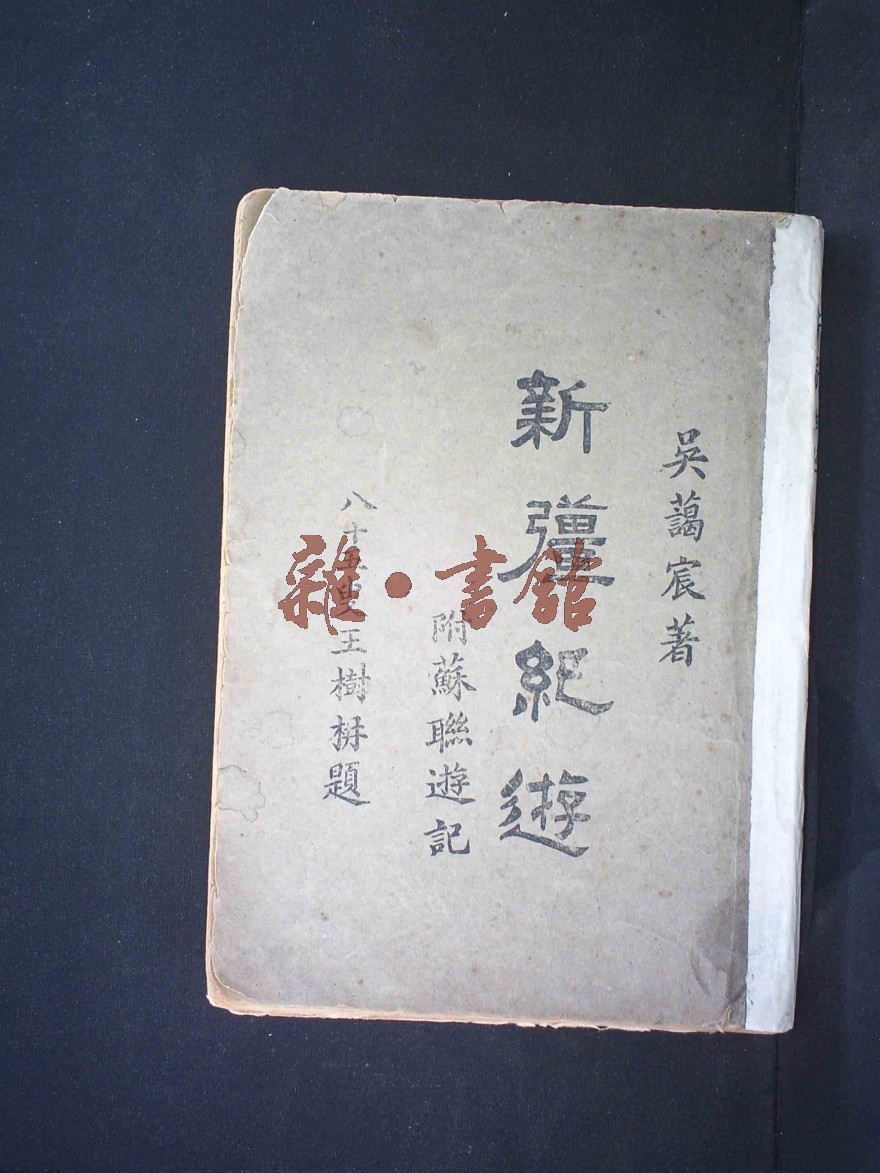 吳藹宸著
新疆紀遊
附蘇聯遊記
八十五叟王樹枏題
雜·書館